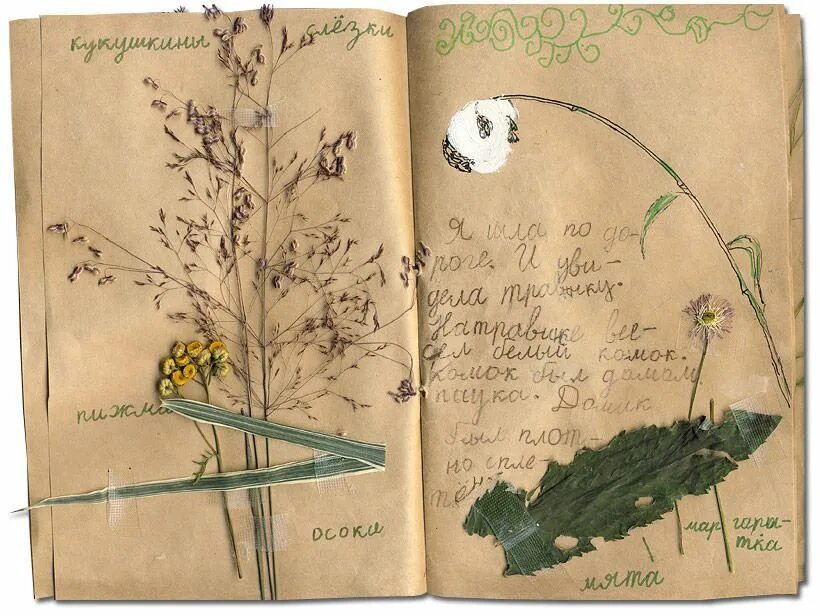 кукушкины слёзки
пижма
осоки
Я шла по до-
роге. И уви-
дела травинку.
На травинке ви-
сел белый комок.
комок был домом
паука. Домик
был плот-
но спле-
тён.
маргары-
тка
мята